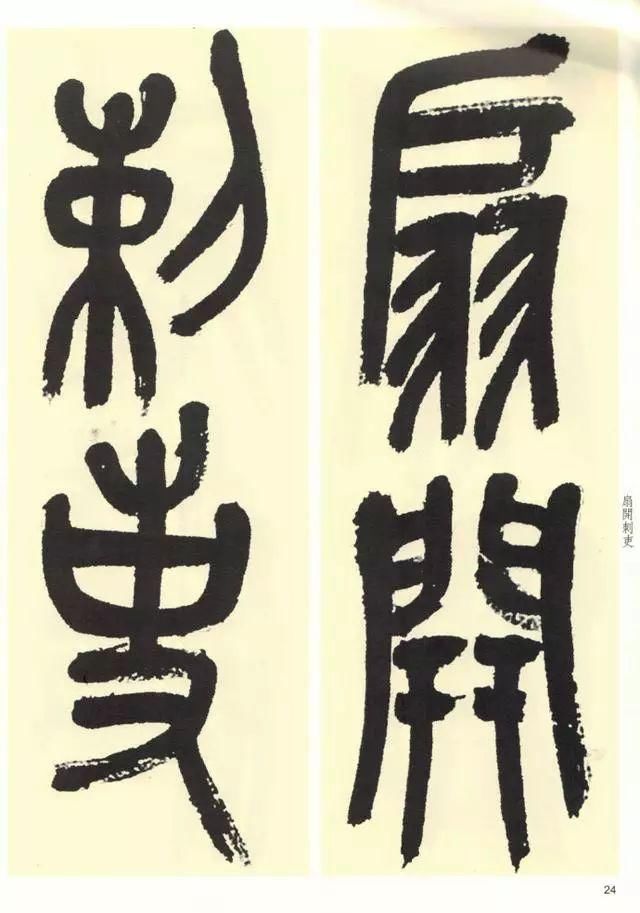 扇開
刺吏
扇開刺吏
24